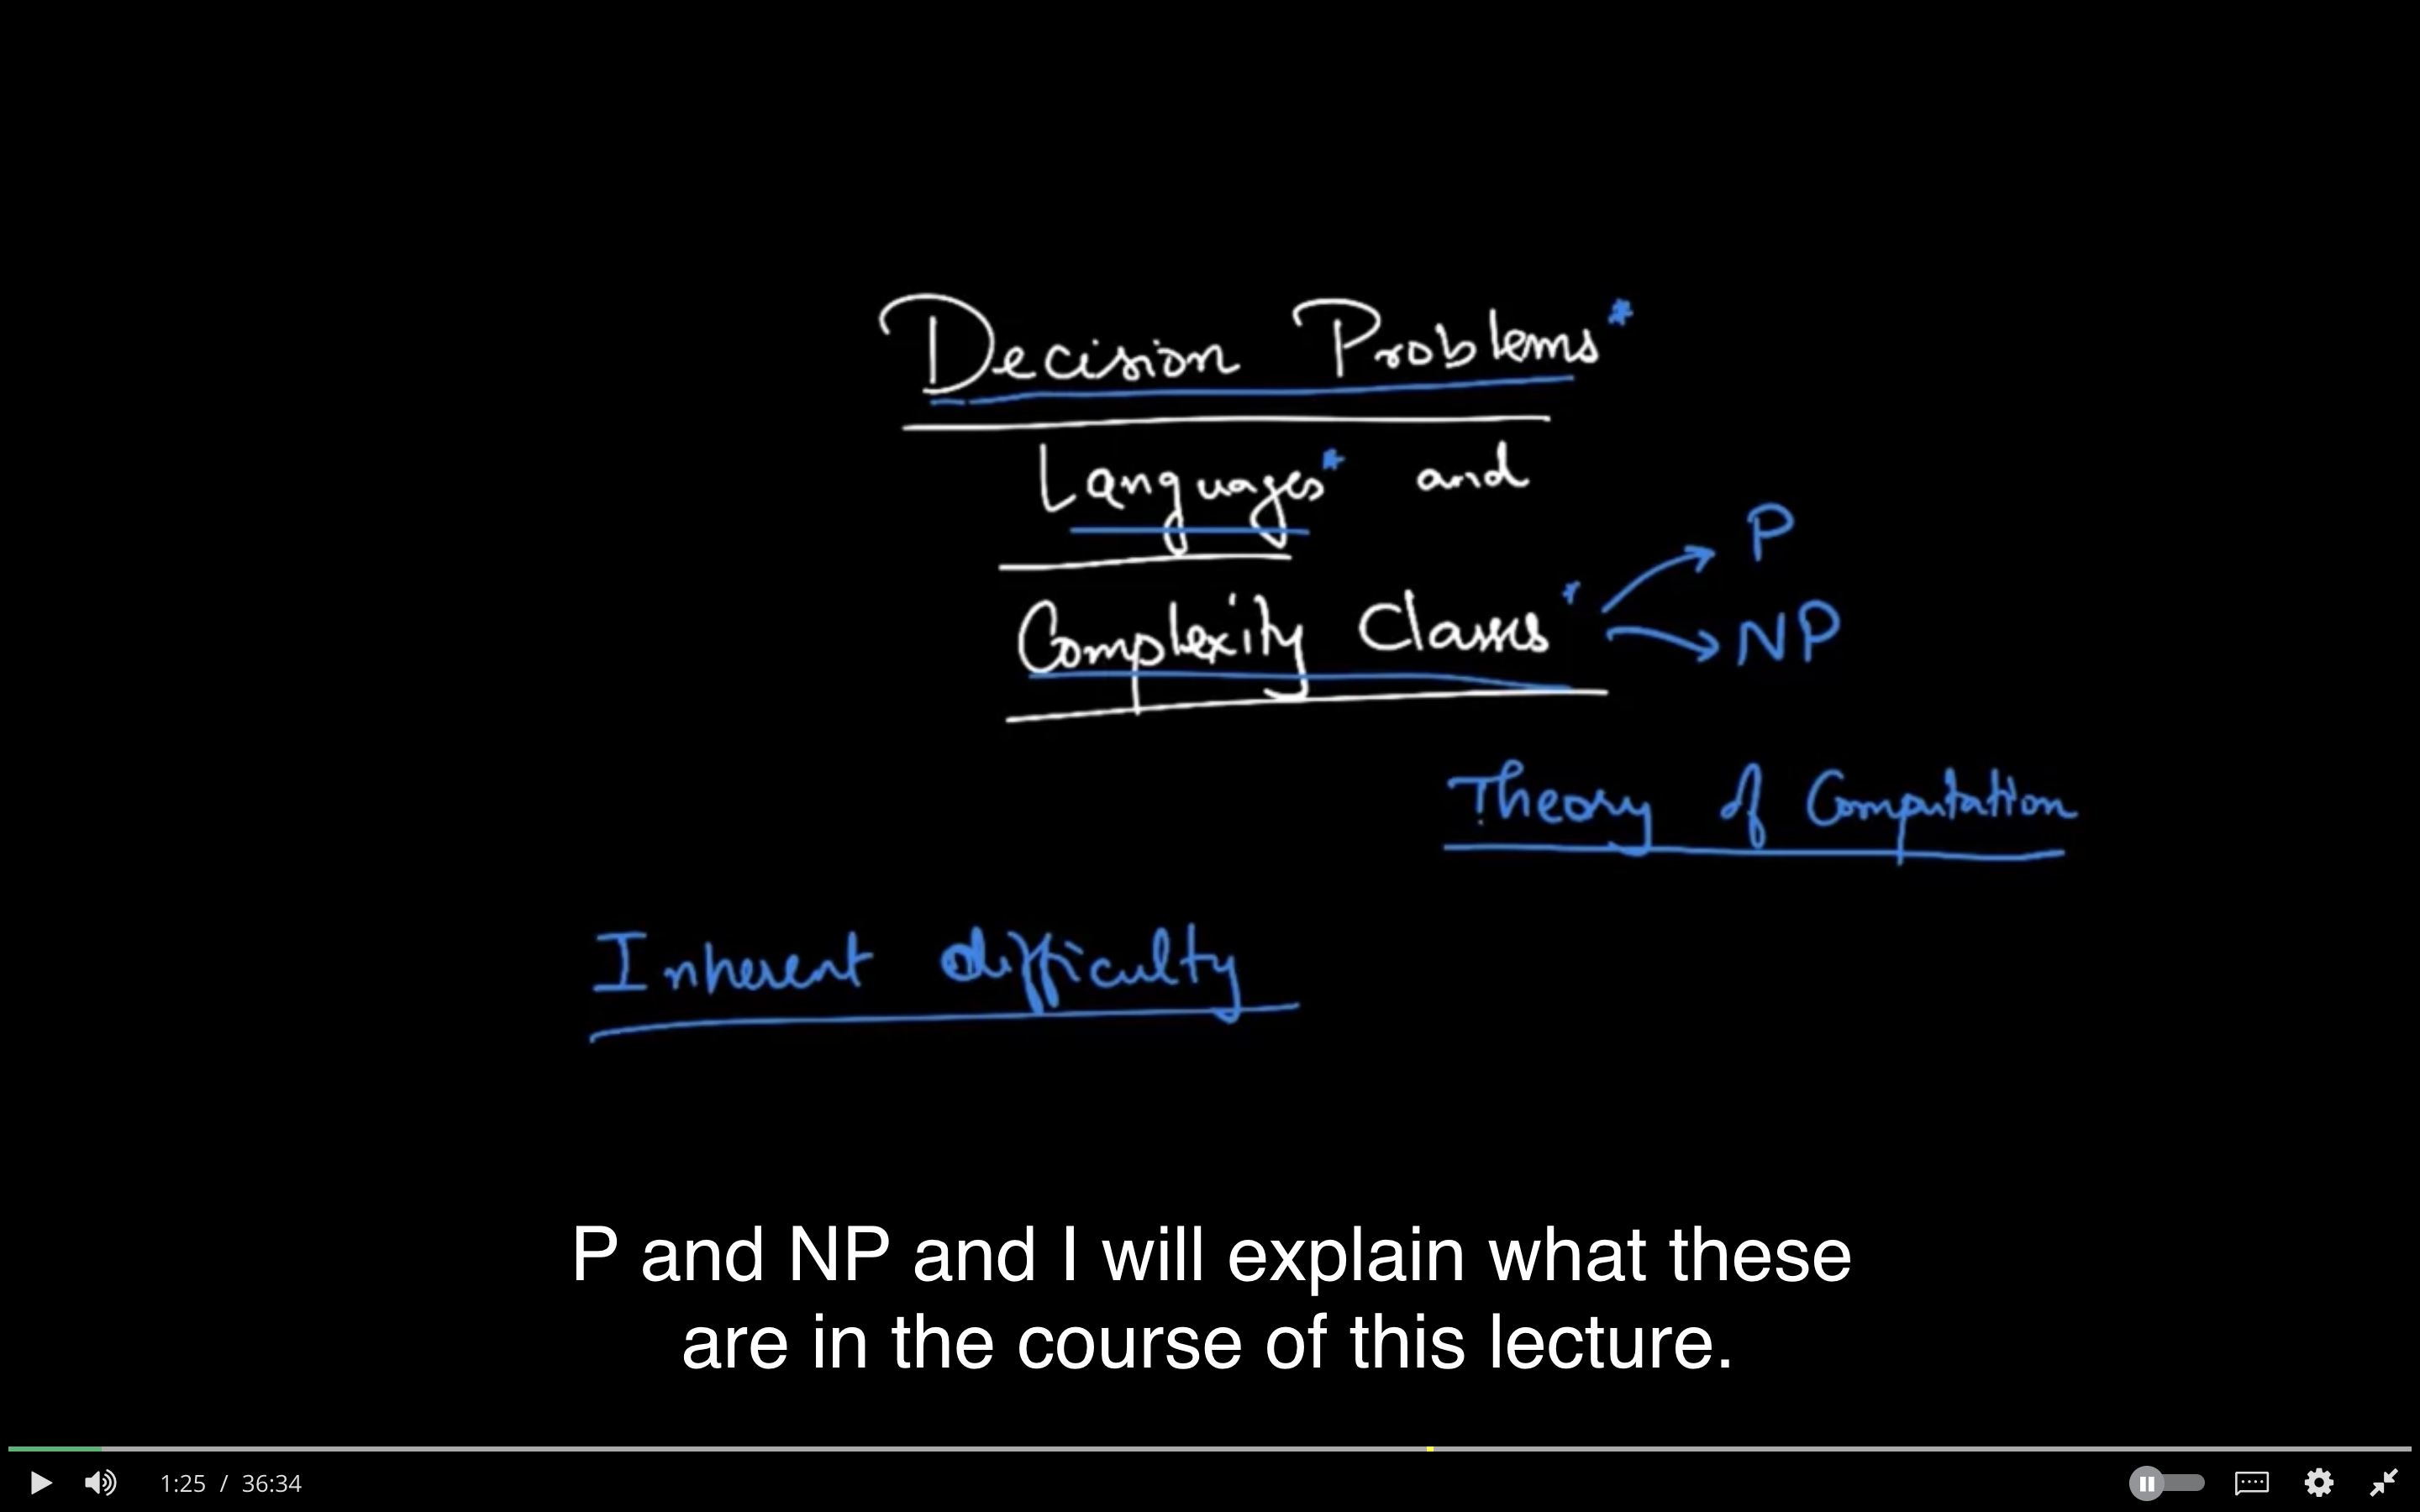 Decision Problems*
Languages* and
Complexity Classes*
P
NP
Theory of Computation
Inherent difficulty
P and NP and I will explain what these
are in the course of this lecture.
1:25 / 36:34